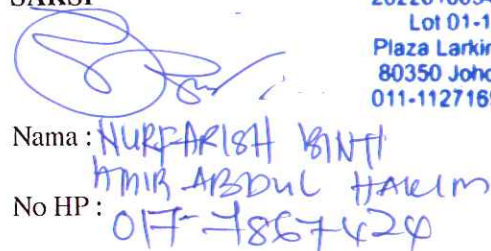 SAKSI
Lot 01-1
Plaza Larkin
80350 Joho
011-1127169
Nama : NURFARISH BINTI
AMIR ABDUL HAKIM
No HP : 017-7867424